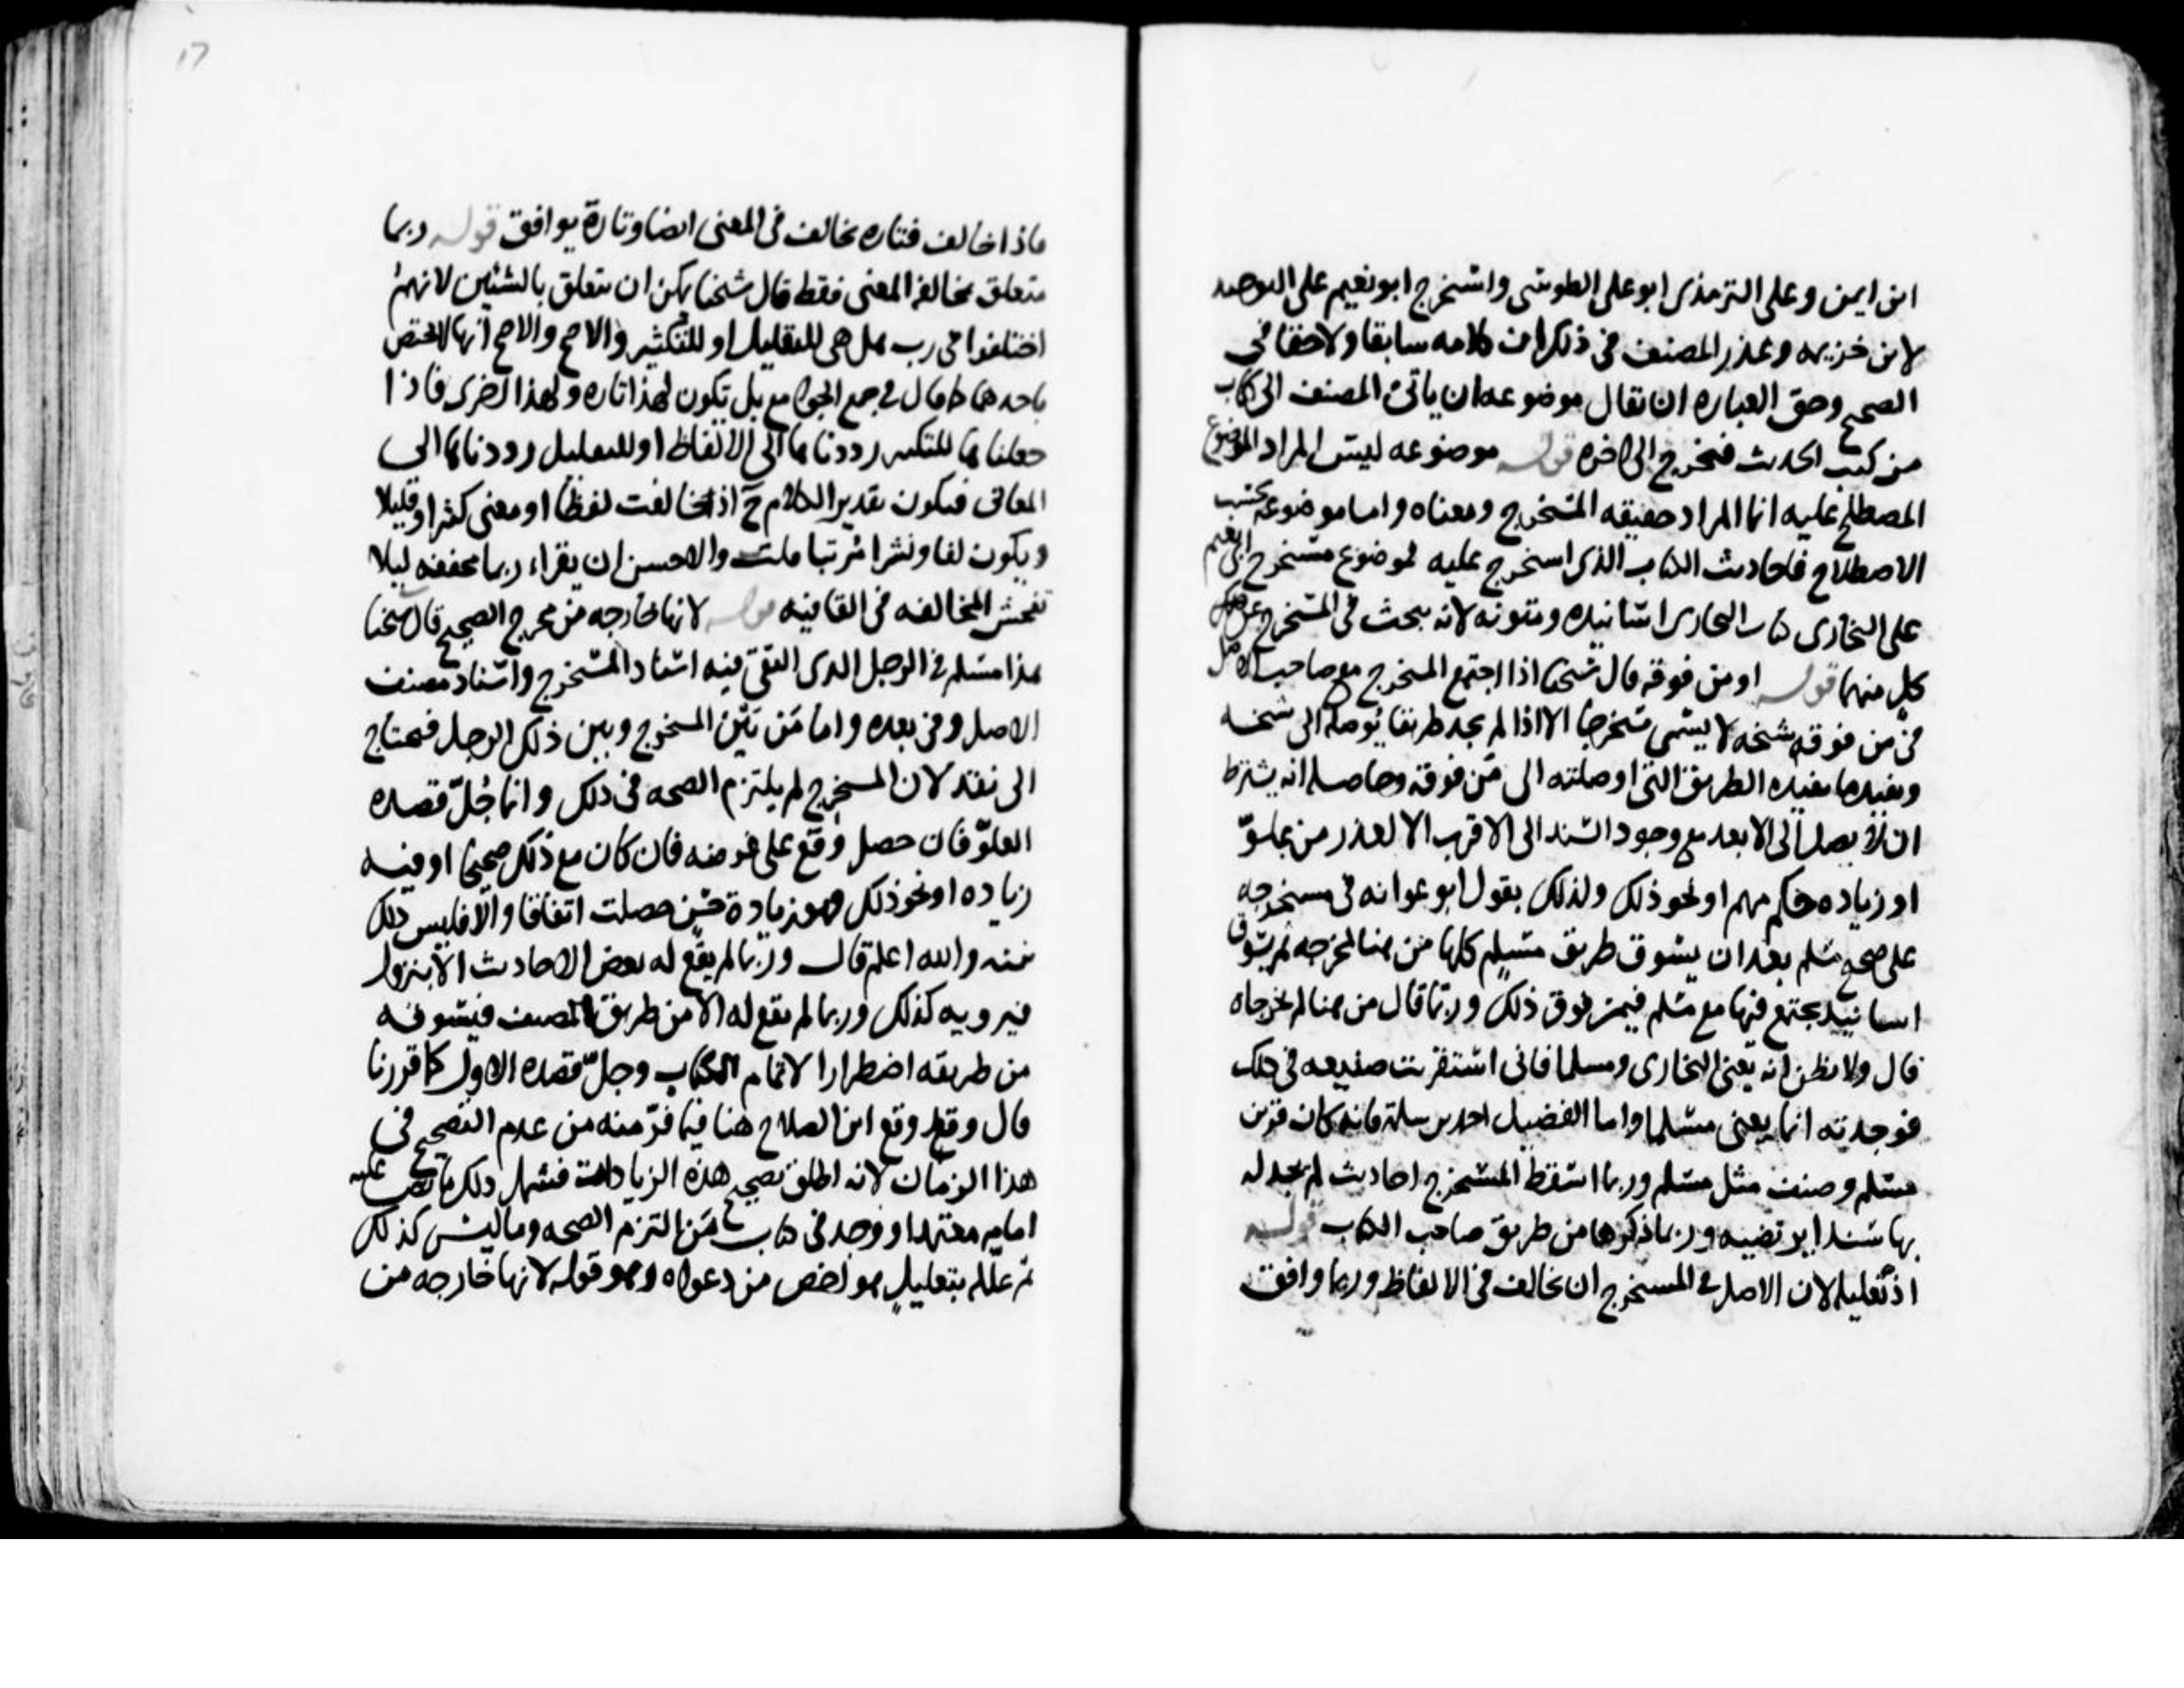 ابن ايمن وعلى الترمذى ابو على الطوسى واستخرج ابو نعيم على التوحيد
لابن خزيمه وعذر المصنف فى ذلك ان كلامه سابقا ولاحقا فى
الصحيح وحق العباره ان يقال موضوعه ان ياتى المصنف الى كتاب
من كتب الحديث فيخرج الى اخره قوله موضوعه ليس المراد الموضوع
المصطلح عليه انما المراد حقيقه المستخرج ومعناه واما موضوعه بحسب
الاصطلاح فاحاديث الكتاب الذى استخرج عليه لموضوع مستخرج ابى نعيم
على البخارى كتاب البخارى اسانيده ومتونه لانه يبحث فى المستخرج عن
كل منهما قوله او من فوقه قال شيخنا اذا اجتمع المستخرج مع صاحب الاصل
فى من فوق شيخه لا يسمى مستخرجا الا اذا لم يجد طريقا يوصله الى شيخه
ويفيده ما يفيده الطريق التى اوصلته الى من فوقه وحاصله انه يشترط
ان لا يصل الى الابعد مع وجود السند الى الاقرب الا لعذر من علو
او زياده حكم مهم او نحو ذلك ولذلك يقول ابو عوانه فى مستخرجه
على صحيح مسلم بعد ان يسوق طريق مسلم كلها من هنا لمخرجه ثم يسوق
اسانيد يجتمع فيها مع مسلم فيمن فوق ذلك وربما قال من هنا لم يخرجاه
قال ولا يظن انه يعنى البخارى ومسلما فانى استقريت صنيعه فى ذلك
فوجدته انما يعنى مسلما واما الفضيل احمد بن سلمة فانه كان قرين
مسلم وصنف مثل مسلم وربما اسقط المستخرج احاديث لم يجد له
بها سندا يرتضيه وربما ذكرها من طريق صاحب الكتاب قوله
اذ تعليله لان الاصل فى المستخرج ان يخالف فى الالفاظ وربما وافق
١٧
فاذا خالف فتاره يخالف فى المعنى ايضا وتارة يوافق قوله ربما
متعلق بمخالفه المعنى فقط قال شيخنا يمكن ان يتعلق بالشيئين لانهم
اختلفوا فى رب هل هى للتقليل او للتكثير والاصح والاصح انها لا تختص
باحدهما كما قال فى جمع الجوامع بل تكون لهذا تاره ولهذا اخرى فاذا
جعلناها للتكثير رددناها الى الالفاظ او للتقليل رددناها الى
المعانى فيكون تقدير الكلام ح اذا خالفت لفظا او معنى كثيرا وقليلا
ويكون لفا ونشرا مرتبا قلت والاحسن ان يقراء ربما مخففه ليلا
تفحش المخالفه فى القافيه قوله لانها خارجه من مخرج الصحيح قال شيخنا
هذا مسلم فى الرجل الذى التقى فيه اسناد المستخرج واسناد مصنف
الاصل وفى بعده واما من بين المستخرج وبين ذلك الرجل فيحتاج
الى نقد لان المستخرج لم يلتزم الصحه فى ذلك وانما جل قصده
العلو فان حصل وقع على غرضه فان كان مع ذلك صحيحا او فيه
زياده او نحو ذلك فهو زيادة حسن حصلت اتفاقا والا فليس ذلك
همه والله اعلم قال وربما لم يقع له بعض الاحاديث الا بنزول
فيرويه كذلك وربما لم يقع له الا من طريق المصنف فيسوقه
من طريقه اضطرارا لاتمام الكتاب وجل قصده الاول كما قررنا
قال وقد وقع ابن الصلاح هنا فيما فر منه من عدم التصحيح فى
هذا الزمان لانه اطلق تصحيح هذه الزيادات فشمل ذلك ما نص عليه
امام معتمد او وجد فى كتاب من التزم الصحه وما ليس كذلك
ثم علله بتعليل هو اخص من دعواه وهو قوله لانها خارجه من